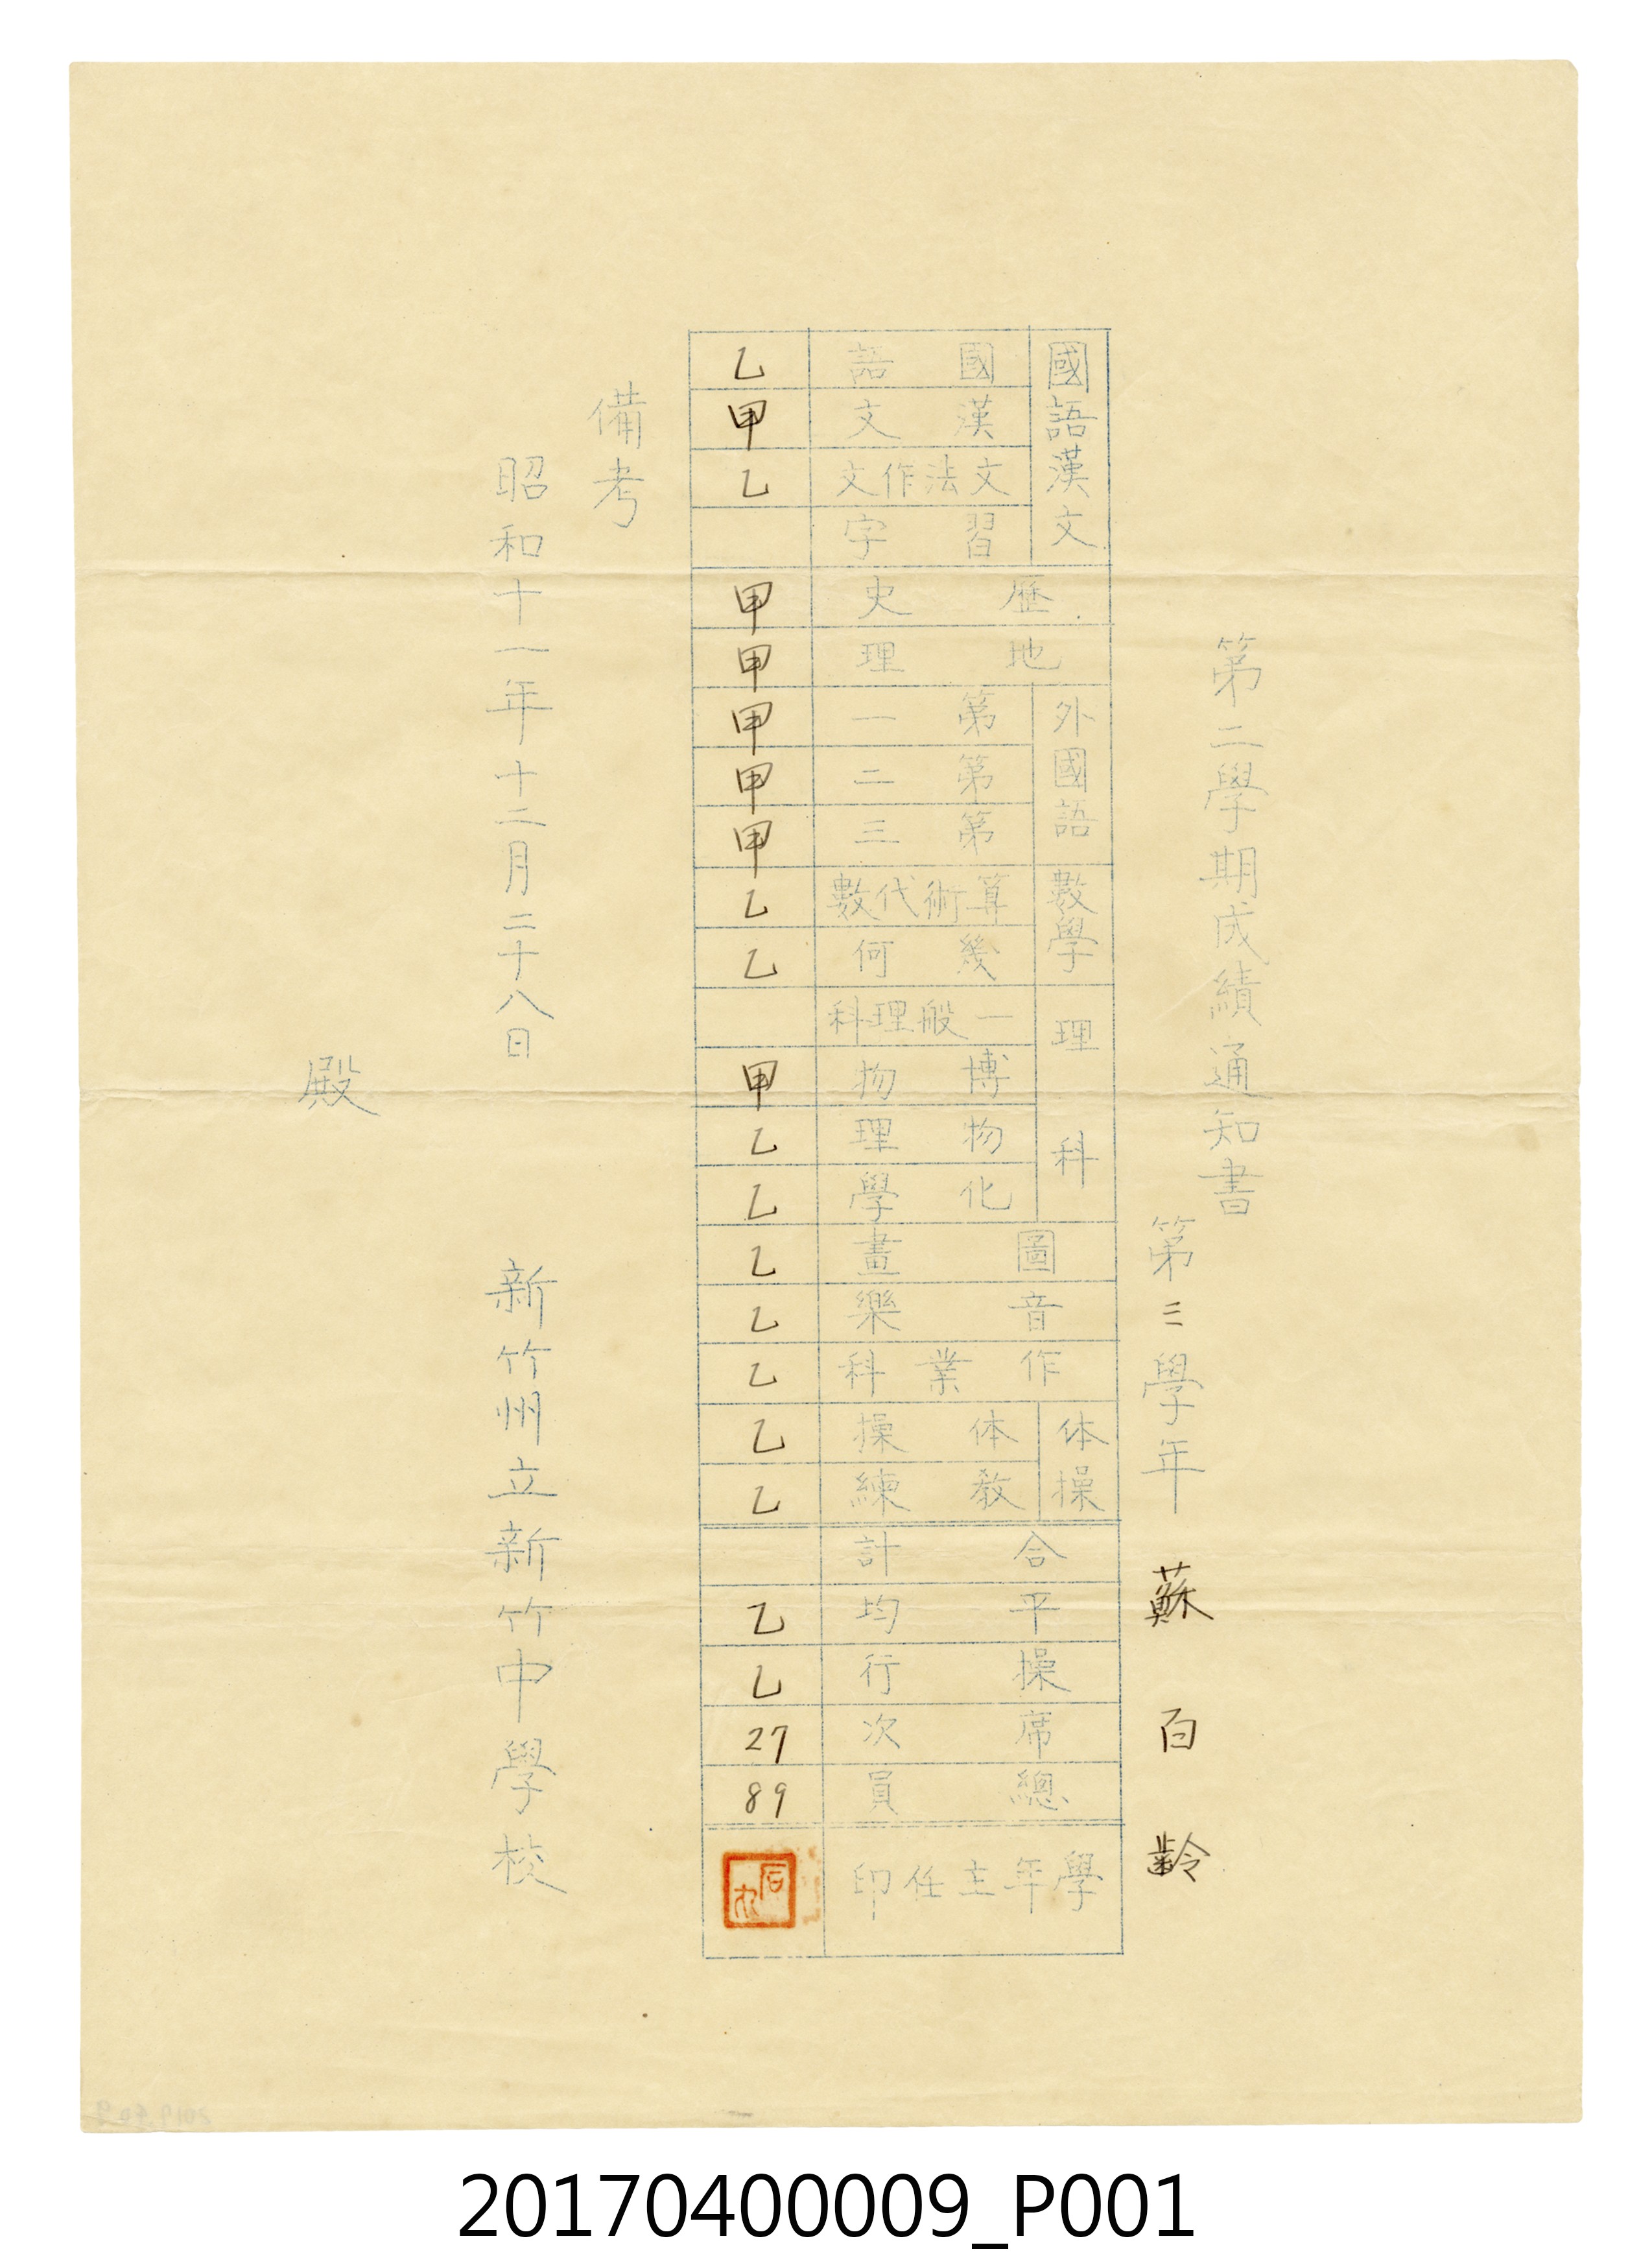 第二學期成績通知書
第三學年 蘇百齡
國語漢文
國語 乙
漢文 甲
文法作文 乙
習字
歷史 甲
地理 甲
外國語
第一 甲
第二 甲
第三 甲
數學
算術代數 乙
幾何 乙
理科
一般理科
博物 甲
物理 乙
化學 乙
圖畫 乙
音樂 乙
作業科 乙
体操
体操 乙
教練 乙
合計
平均 乙
操行 乙
席次 27
總員 89
學年主任印
備考
昭和十一年十二月二十八日
新竹州立新竹中學校
殿
20170400009_P001